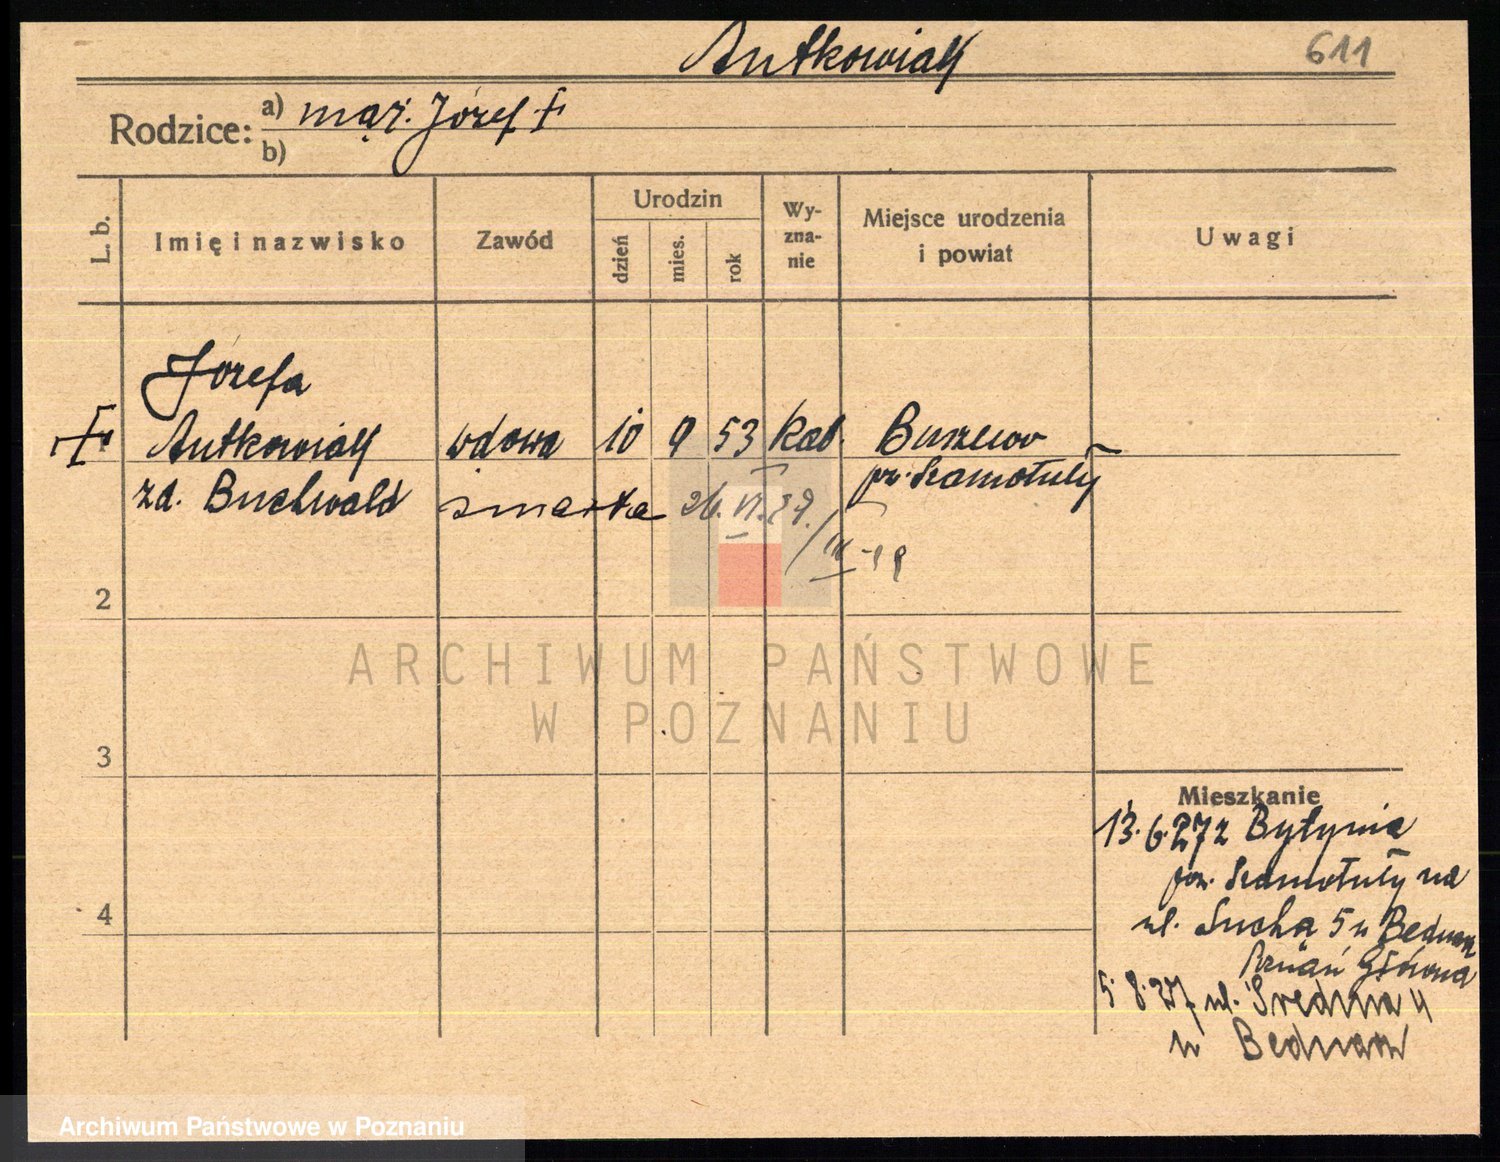 Antkowiak
611
Rodzice:
a) mąż. Józef †
b)
L. b.
Imię i nazwisko
Zawód
Urodzin
dzień
mies.
rok
Wy-
zna-
nie
Miejsce urodzenia
i powiat
Uwagi
Józefa
† Antkowiak wdowa 10 9 53 kat. Buszewo
zd. Buchwald
pow. Szamotuły
zmarła 26. VI. 29.
2
3
4
Mieszkanie
13.6.27 z Bytynia
pow. Szamotuły na
ul. Suchą 5 u Bednarz
Poznań Główna
5.8.27 ul. Średnia 4
u Bednarz
ARCHIWUM PAŃSTWOWE
W POZNANIU
Archiwum Państwowe w Poznaniu